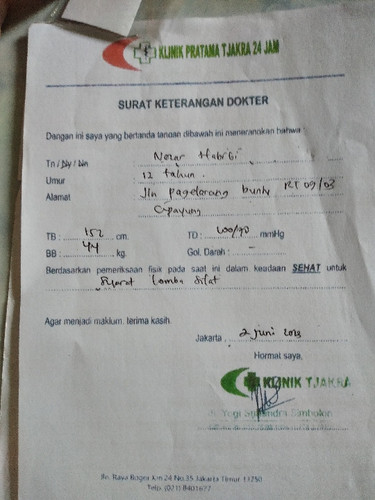 KLINIK PRATAMA TJAKRA 24 JAM
SURAT KETERANGAN DOKTER
Dengan ini saya yang bertanda tangan dibawah ini menerangkan bahwa :
Tn / Ny / Nn :
Umur : 12 tahun.
Alamat : Jln pagelarang bunly RT 09/03
Cipayung
TB : 152 cm. TD : 100/70 mmHg
BB : 44 kg. Gol. Darah : -
Berdasarkan pemeriksaan fisik pada saat ini dalam keadaan SEHAT untuk
Syarat lomba silat
Agar menjadi maklum, terima kasih.
Jakarta , 2 juni 2023
Hormat saya,
KLINIK TJAKRA
Jln. Raya Bogor Km 24 No.35 Jakarta Timur 13750
Telp. (021) 8401677